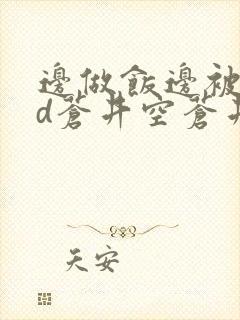 邊做飯邊被
d蒼井空蒼井
天安